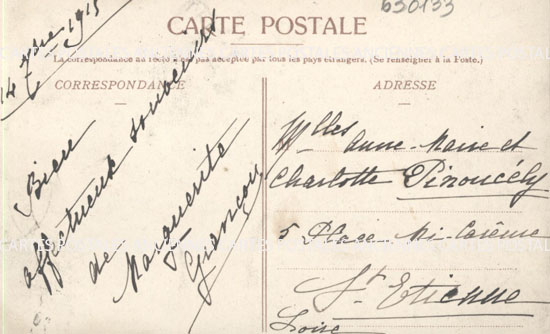 630133
CARTE POSTALE
La correspondance au recto n'est pas acceptée par tous les pays étrangers. (Se renseigner à la Poste.)
CORRESPONDANCE
14 1915
Bien
affectueux souvenirs
de
Marguerite
Grançon
ADRESSE
Mlles Anne-Marie et
Charlotte Pinoucély
5 Place Mi-Carême
St Etienne
Loire